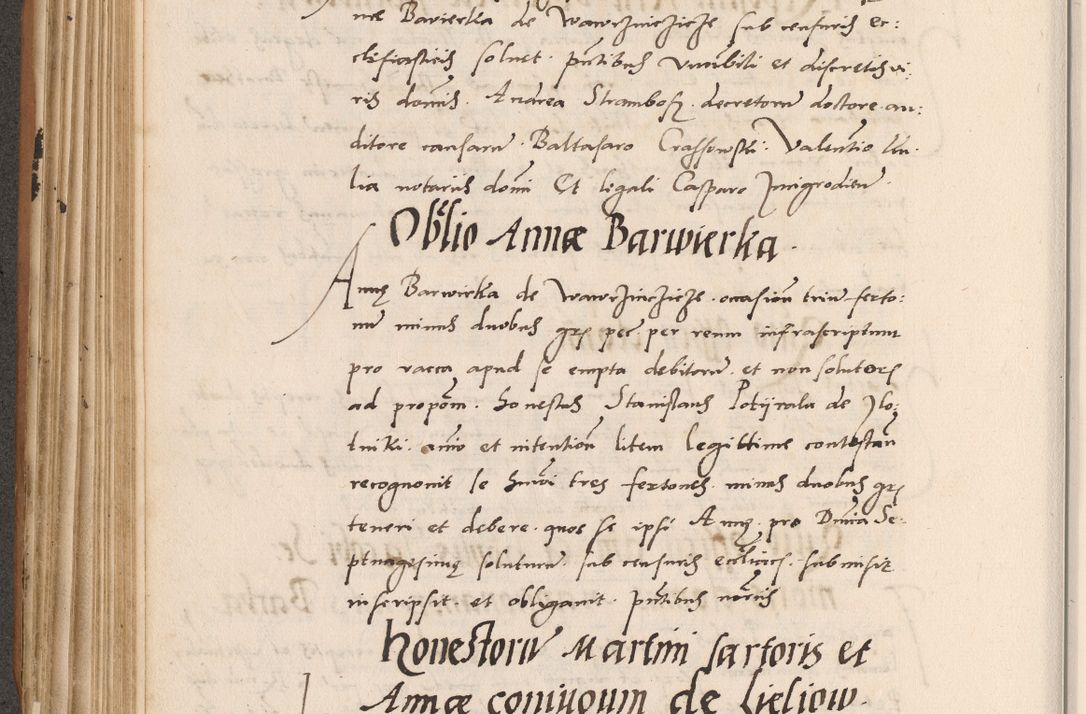 næ Barwierka de Wawrzinczicze sub censuris ec:
clesiasticis soluet. pntibus Venlibili et discretis vi:
ris dominis. Andrea Strambosz. decretorum doctore au:
ditore causarum. Baltasaro Crassowski. Valentio
lia notariis domini Et legali Casparo
Oblio Annæ Barwierka.
Annæ Barwirka de Wawrzinczicze. occasion trium ferto:
num minus duobus grs pec. per reum infrascriptum
pro vacca apud se empta debitorum. et non solutors
ad propom. honestus Stanislaus Potyrala de Zlo:
tniki. animo et intention litem legittime contestan
recognouit se huic tres fertones. minus duobus grs
teneri et debere. quos se ipsi Annæ. pro Dnica Se:
ptuagesimæ soluturum. sub censuris ecclicis. submisit
inscripsit. et obligauit. pntibus
Honestorum Martini sartoris et
Annæ coniugum de